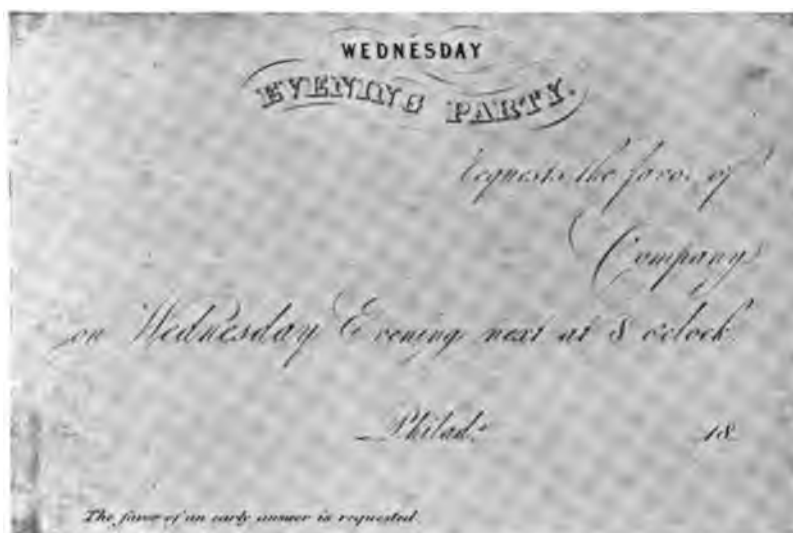 WEDNESDAY
EVENING PARTY.
requests the favor of
Company
on Wednesday Evening next at 8 o'clock
Philad.ª
18
The favor of an early answer is requested.